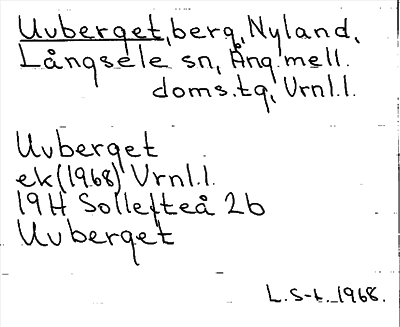 Uvberget, berg, Nyland,
Långsele sn, Ång. mell.
doms.tg, Vrnl.l.
Uvberget
ek (1968) Vrnl.l.
19H Sollefteå 2b
Uvberget
L.S-t. 1968.